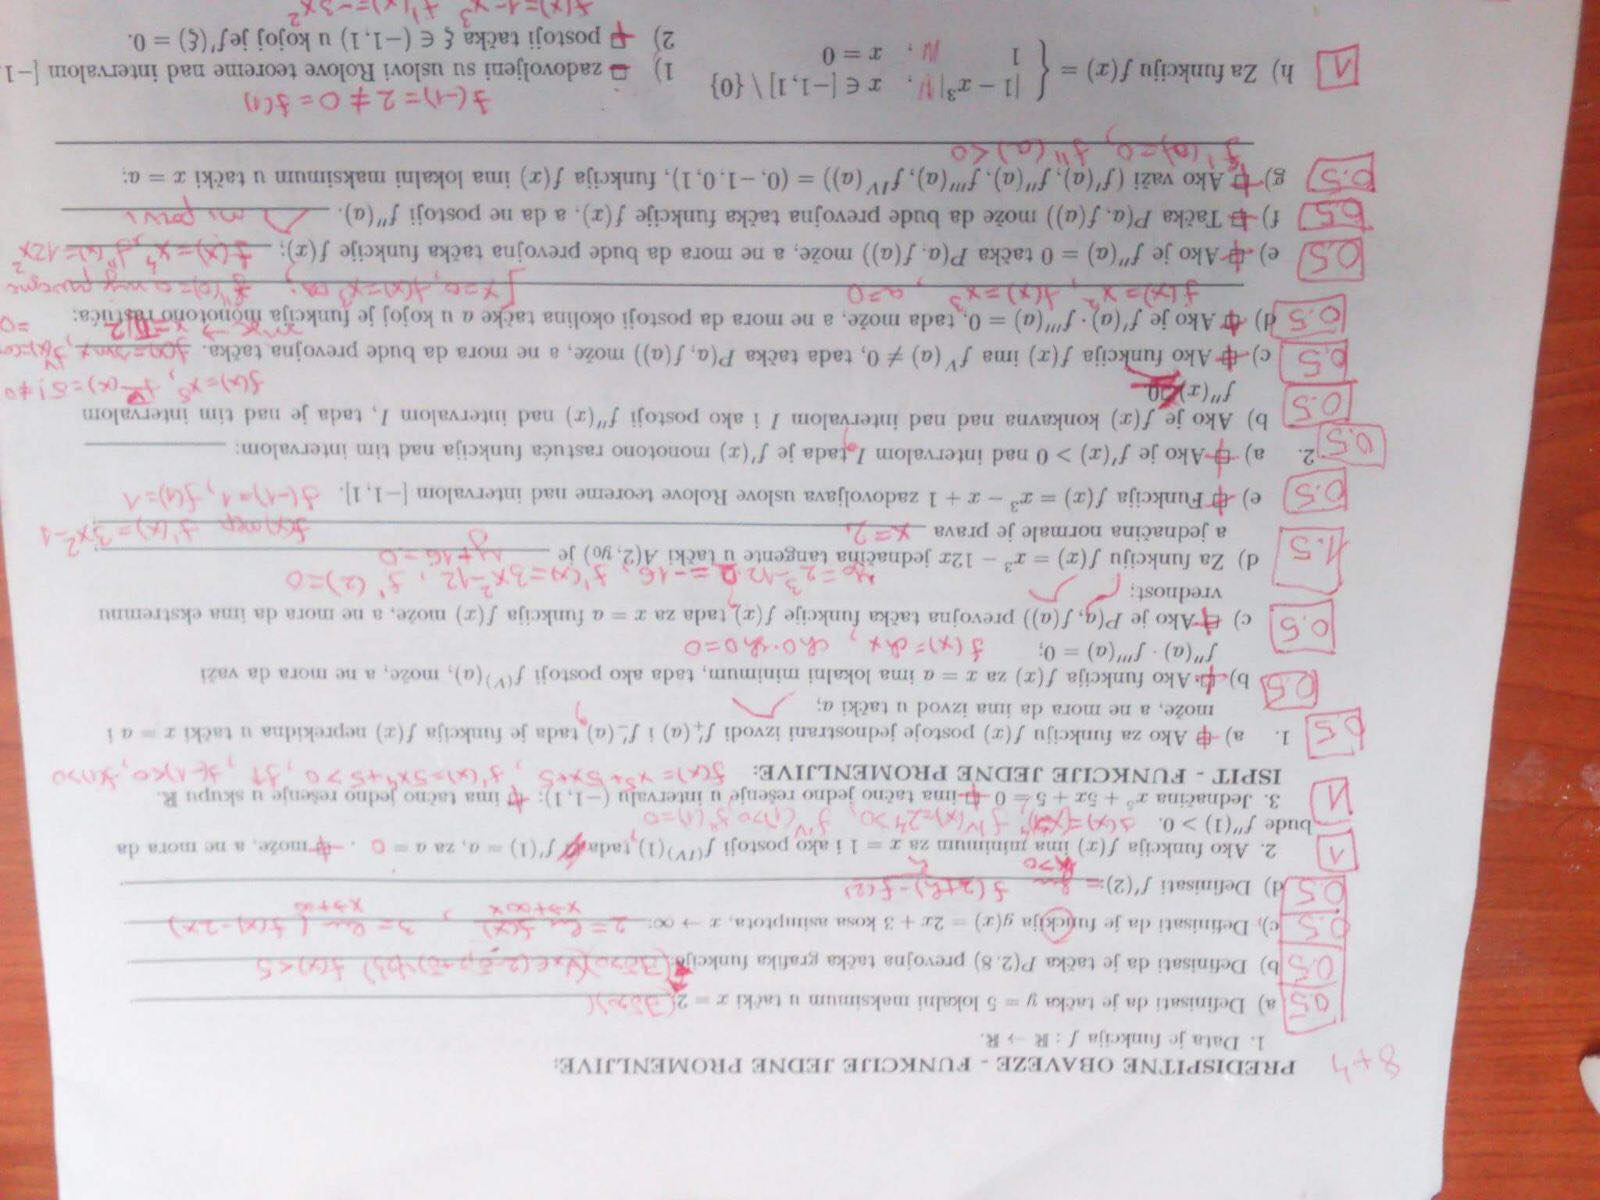 8+4
PREDISPITNE OBAVEZE - FUNKCIJE JEDNE PROMENLJIVE:
1. Data je funkcija f : ℝ → ℝ.
0.5 a) Definisati da je tačka y = 5 lokalni maksimum u tački x = 2 (∃δ>0)(
0.5 b) Definisati da je tačka P(2, 8) prevojna tačka grafika funkcije (∃δ>0)(∀x∈(2-δ, 2+δ)\{2}) f(x)<5
0.5 c) Definisati da je funckija g(x) = 2x + 3 kosa asimptota, x → ∞: 2 = lim x→+∞ f(x)/x , 3 = lim x→+∞ (f(x)-2x)
0.5 d) Definisati f'(2):= lim h→0 f(2+h)-f(2)/h
1 2. Ako funkcija f(x) ima minimum za x = 1 i ako postoji f^(IV)(1), tada f'(1) = a, za a = 0 . može, a ne mora da
bude f''(1) > 0. f(x)=(x-1)⁴, f^IV(x)=24>0, f^IV(1)>0, f''(1)=0
1 3. Jednačina x⁵ + 5x + 5 = 0 ima tačno jedno rešenje u intervalu (−1, 1); ima tačno jedno rešenje u skupu ℝ.
ISPIT - FUNKCIJE JEDNE PROMENLJIVE: f(x)=x⁵+5x+5, f'(x)=5x⁴+5>0, f↑, f(-1)<0, f(1)>0
0.5 1. a) Ako za funkciju f(x) postoje jednostrani izvodi f'₊(a) i f'₋(a), tada je funkcija f(x) neprekidna u tački x = a i
može, a ne mora da ima izvod u tački a;
0.5 b) Ako funkcija f(x) za x = a ima lokalni minimum, tada ako postoji f^(V)(a), može, a ne mora da važi
f''(a) · f'''(a) = 0; f(x)=chx, ch0·sh0=0
0.5 c) Ako je P(a, f(a)) prevojna tačka funkcije f(x), tada za x = a funkcija f(x) može, a ne mora da ima ekstremnu
vrednost; y₀=2³-12·2=-16, f'(x)=3x²-12, f'(2)=0
1.5 d) Za funkciju f(x) = x³ − 12x jednačina tangente u tački A(2, y₀) je y+16=0
a jednačina normale je prava x=2 f(x) nepr f'(x)=3x²-1
0.5 e) Funkcija f(x) = x³ − x + 1 zadovoljava uslove Rolove teoreme nad intervalom [−1, 1]. f(-1)=1, f(1)=1
0.5 2. a) Ako je f'(x) > 0 nad intervalom I, tada je f'(x) monotono rastuća funkcija nad tim intervalom:
0.5 b) Ako je f(x) konkavna nad nad intervalom I i ako postoji f''(x) nad intervalom I, tada je nad tim intervalom
f''(x) 0 f(x)=x⁵, f^V(x)=5!≠0
0.5 c) Ako funkcija f(x) ima f^V(a) ≠ 0, tada tačka P(a, f(a)) može, a ne mora da bude prevojna tačka. f(x)=sinx,
0.5 d) Ako je f'(a) · f'''(a) = 0, tada može, a ne mora da postoji okolina tačke a u kojoj je funkcija monotono rastuća;
f(x)=x², f(x)=x³, a=0
0.5 e) Ako je f''(a) = 0 tačka P(a, f(a)) može, a ne mora da bude prevojna tačka funkcije f(x); f(x)=x⁴, f''(x)=12x²
0.5 f) Tačka P(a, f(a)) može da bude prevojna tačka funkcije f(x), a da ne postoji f''(a). ni prvi
0.5 g) Ako važi (f'(a), f''(a), f'''(a), f^IV(a)) = (0, −1, 0, 1), funkcija f(x) ima lokalni maksimum u tački x = a;
f'(a)=0, f''(a)<0
f(-1)=2≠0=f(1)
1 h) Za funkciju f(x) = { |1 − x³| , x ∈ [−1, 1] \ {0}
1 , x = 0
1) zadovoljeni su uslovi Rolove teoreme nad intervalom [−1
2) postoji tačka ξ ∈ (−1, 1) u kojoj je f'(ξ) = 0.
f(x)=1-x³ f'(x)=-3x²